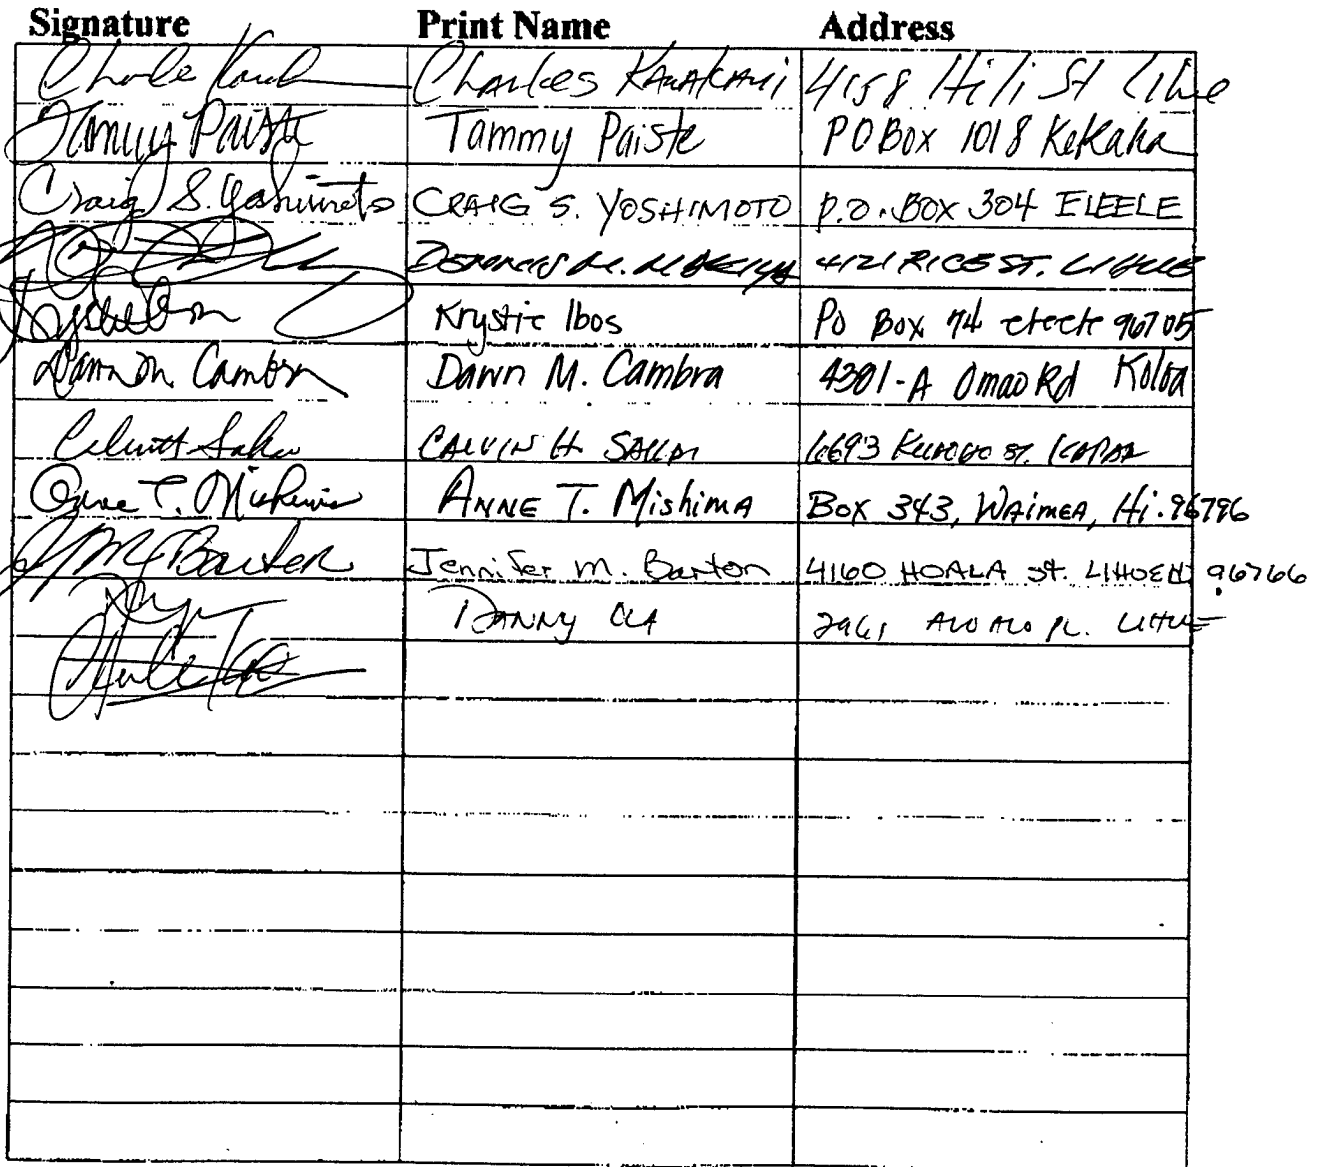 Signature Print Name Address
Charles Kawakami 4158 Hili St Lihue
Tammy Paiste Tammy Paiste PO Box 1018 Kekaha
Craig S. Yoshimoto CRAIG S. YOSHIMOTO P.O. BOX 304 ELEELE
DENNIS M. 4121 RICE ST. LIHUE
Krystie Ibos PO Box 74 eleele 96705
Dawn M. Cambra Dawn M. Cambra 4301-A Omao Rd Koloa
CALVIN H. SAKAI 6693 ST. KAPAA
Anne T. Mishima ANNE T. Mishima Box 343, WAIMEA, Hi. 96796
JM Barton Jennifer M. Barton 4160 HOALA St. LIHUE HI 96766
DANNY OLA 2961 ALOALO PL. LIHUE